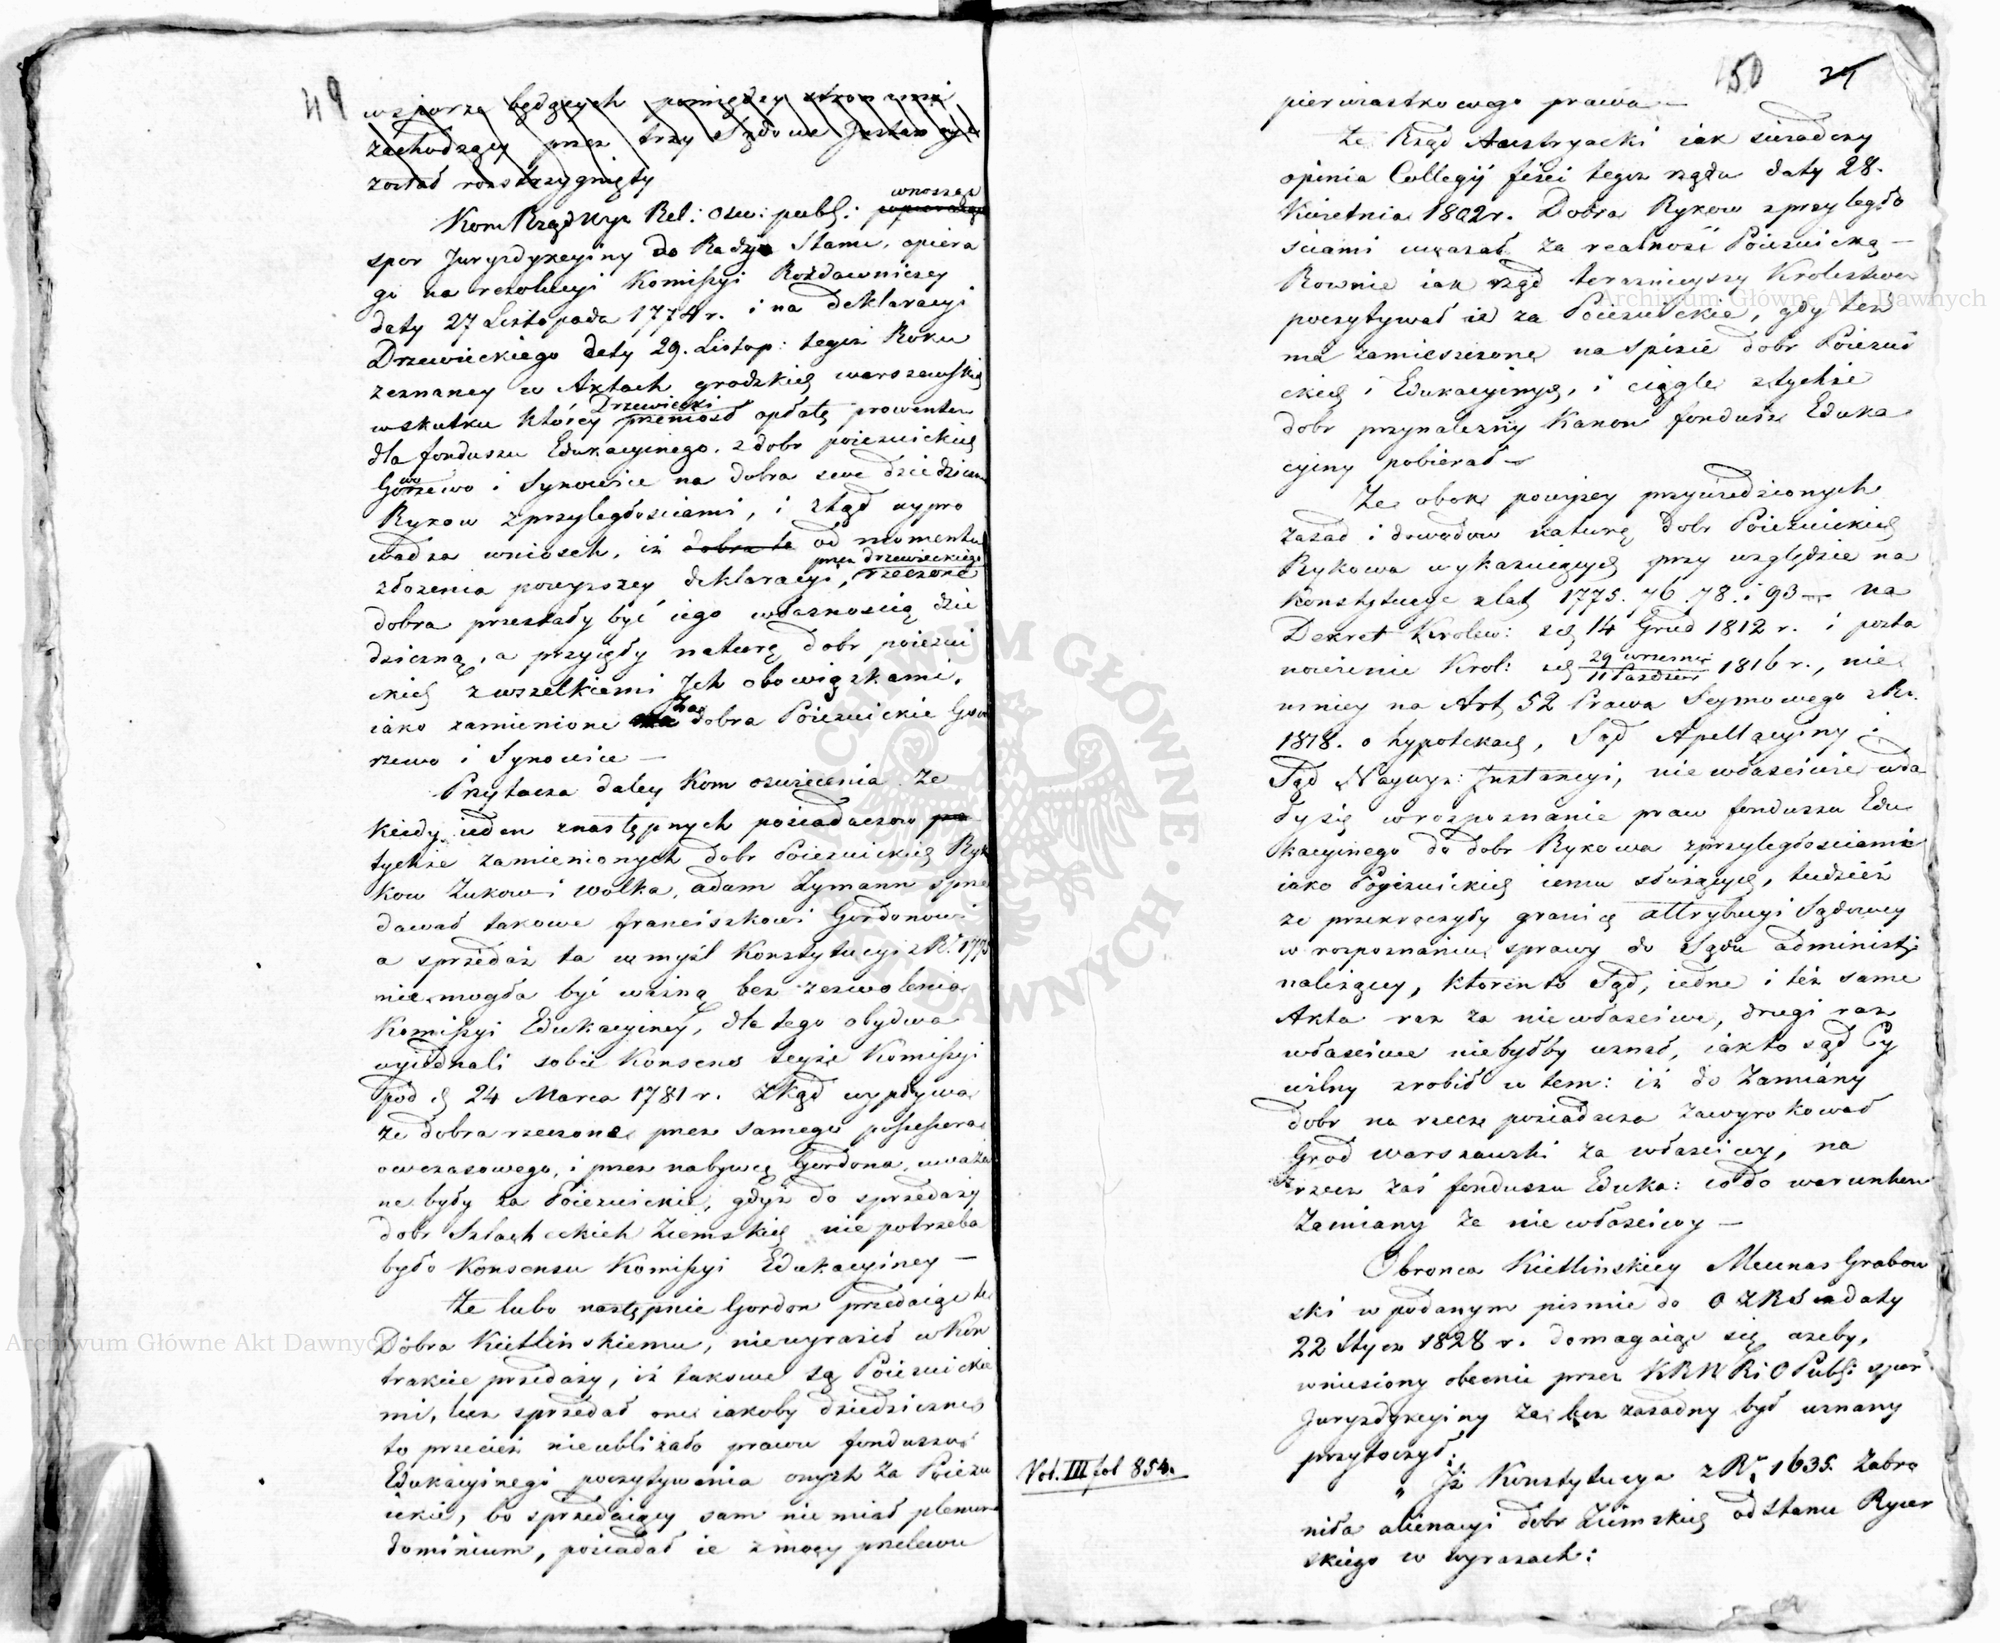 49
w sporze będących pomiędzy stronami
zachodzący przez trzy Sądowe Instancye
został rozstrzygnięty
Kom Rząd Wyz Rel: Osw: publ: wnosząc popierając
spor Juryzdykcyiny do Rady Stanu, opiera
go na rezolucyi Komißyi Rozdawniczey
daty 27 Listopada 1774 r. i na deklaracyi
Drzewieckiego daty 29. Listop: tegoż Roku
zeznaney w Aktach grodzkich warszawskich
w skutku którey Drzewiecki przeniosł opłatę prowentu
dla funduszu Edukacyinego, z dobr poiezuickich
Goworzewo i Synowice na dobra swe dziedziczne
Rykow z przyległościami, i ztąd wypro
wadza wniosek, iż dobra te od momentu
złożenia powyższey deklaracyi, przez Drzewieckiego rzeczone
dobra przestały być iego własnością dzie
dziczną, a przyięły naturę dobr poiezui
ckich z wszelkiemi Ich obowiązkami,
iako zamienione za dobra Poiezuickie Gowo
rzewo i Synowice —
Przytacza daley Kom oswiecenia Że
kiedy ieden z następnych posiadaczow
tychże zamienionych dobr Poiezuickich Ryk
kow Żukow i Wolka, adam Zymann sprze
dawał takowe franciszkowi Gordonowi
a sprzedaż ta w myśl Konstytucyi z R. 1775
nie mogła być ważną bez zezwolenia
Komißyi Edukacyiney, dla tego obydwa
wyiednali sobie Konsens teyże Komißyi
pod d 24 Marca 1781 r. Zkąd wypływa
że dobra rzeczone przez samego poßeßora
owczasowego, i przez nabywcę Gordona, uważa
ne były za Poiezuickie, gdyż do sprzedaży
dobr Szlacheckich Ziemskich nie potrzeba
było Konsensu Komißyi Edukacyiney —
Że lubo następnie Gordon przedaiąc te
Dobra Kietlinskiemu, nie wyraził w Kon
trakcie przedaży, iż takowe są Poiezuickie
mi, lecz sprzedał one iakoby dziedziczne
to przecież nie ubliżało prawu funduszu
Edukacyinego poczytywania onych za Poiezu
ickie, bo sprzedaiący sam nie miał plenum
dominium, posiadał ie z mocy przelewu
150 25
pierwiastkowego prawa —
Że Rząd Austryacki iak swiadczy
opinia Collegij fisci tegoż rządu daty 28.
Kwietnia 1802 r. Dobra Rykow z przyległo
sciami uważał za realność Poiezuicką —
Rownie iak rząd teraznieyszy Krolestwa
poczytywał ie za Poiezuickie, gdy też
ma zamieszczone na spisie dobr Poiezui
ckich i Edukacyinych, i ciągle z tychże
dobr przynależny Kanon fundusz Eduka
cyiny pobierał —
Że obok powyżey przywiedzionych
zasad i dowodow naturę dobr Poiezuickich
Rykowa wykazuiących przy względzie na
Konstytucye z lat 1775. 76. 78. i 93 — na
Dekret Krolew: z d 14 Grud 1812 r. i posta
nowienie Krol: z d 29 wrzesnia / 11 Pazdzier 1816 r., nie
mniey na Art 52 Prawa Seymowego z Ro.
1818. o hypotekach, Sąd Apellacyiny i
Sąd Naywyz: Instancyi, nie własciwie wda
ły się w rozpoznanie praw funduszu Edu
kacyinego do dobr Rykowa z przyległościami
iako Poiezuickich iemu służących, tudzież
że przekroczyły granicę attrybucyi Sądowey
w rozpoznaniu sprawy do Sądu administ:
należącey, ktoren to Sąd, iedne i też same
Akta raz za nie własciwe, drugi raz
własciwe niebyłby uznał, iak to sąd Cy
wilny zrobił w tem: iż do Zamiany
dobr na rzecz posiadacza zawyrokował
Grod warszawski za własciwy, na
rzecz zaś funduszu Eduka: co do warunkow
Zamiany że nie własciwy —
Obronca Kietlinskiey Mecenas Grabow
ski w podanym pismie do O Z R S z daty
22 Stycz 1828 r. domagaiąc się ażeby,
wniesiony obecnie przez K R W R i O Publ: spor
Juryzdykcyiny za bez zasadny był uznany
przytoczył:
Vol. III fol 854.
„ Iż Konstytucya z R. 1635. Zabro
niła alienacyi dobr Ziemskich od Stanu Rycer
skiego w wyrazach:
Archiwum Główne Akt Dawnych
Archiwum Główne Akt Dawnych
ARCHIWUM GŁÓWNE AKT DAWNYCH